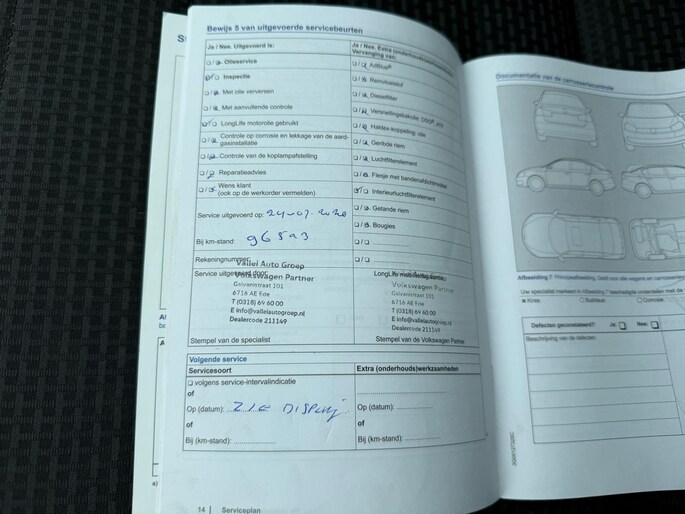 Bewijs 5 van uitgevoerde servicebeurten
Ja / Nee. Uitgevoerd is:
Olieservice
Inspectie
Met olie verversen
Met aanvullende controle
LongLife motorolie gebruikt
Controle op corrosie en lekkage van de aard-
gasinstallatie
Controle van de koplampafstelling
Reparatieadvies
Wens klant
(ook op de werkorder vermelden)
Service uitgevoerd op: 24-07-2020
Bij km-stand:
Rekeningnummer:
Vallei Auto Groep
Service uitgevoerd door:
Volkswagen Partner
Galvanistraat 101
6716 AE Ede
T (0318) 69 60 00
E info@valleiautogroep.nl
Dealercode 211149
Stempel van de specialist
Ja / Nee. Extra (onderhouds)
Vervanging van:
AdBlue®
Remvloeistof
Dieselfilter
Haldex-koppeling: olie
Geribde riem
Luchtfilterelement
Flesje met bandenafdichtmiddel
Interieurluchtfilterelement
Getande riem
Bougies
Volkswagen Partner
Galvanistraat 101
6716 AE Ede
T (0318) 69 60 00
E info@valleiautogroep.nl
Dealercode 211149
Stempel van de Volkswagen Partner
Volgende service
Servicesoort
Extra (onderhouds)werkzaamheden
volgens service-intervalindicatie
of
Op (datum): ZIE DISPLAY
Op (datum):
of
of
Bij (km-stand):
Bij (km-stand):
14 | Serviceplan
Documentatie van de carrosseriecontrole
Defecten geconstateerd? Ja: Nee:
Beschrijving van de defecten: